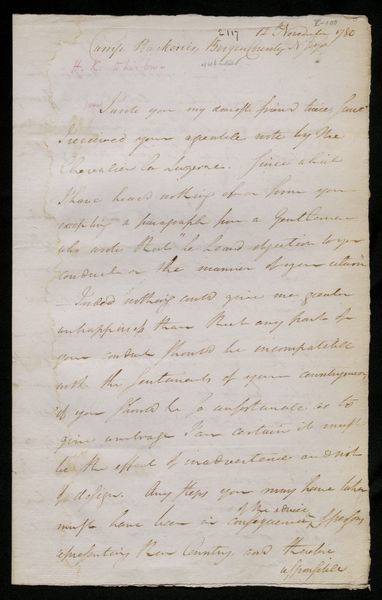 2117
12 November 1780
Camp Hackensack, Bergen County N Jersey
H. K. to his brother
I wrote you my dearest friend twice since
I received your agreeable note by the
Chevalier La Luzerne. Since which
I have heard nothing of or from you
excepting a paragraph from a Gentleman
who wrote that he heard objection to your
conduct or the manner of your
Indeed nothing could give me greater
unhappiness than that any part of
your conduct should be incompatible
with the sentiments of your countrymen
if you should be so unfortunate as to
give umbrage I am certain it must
be the effect of inadvertence and not
of design. Any steps you may have taken
of the advice
must have been in consequence of persons
representing their Country and therefore
responsible